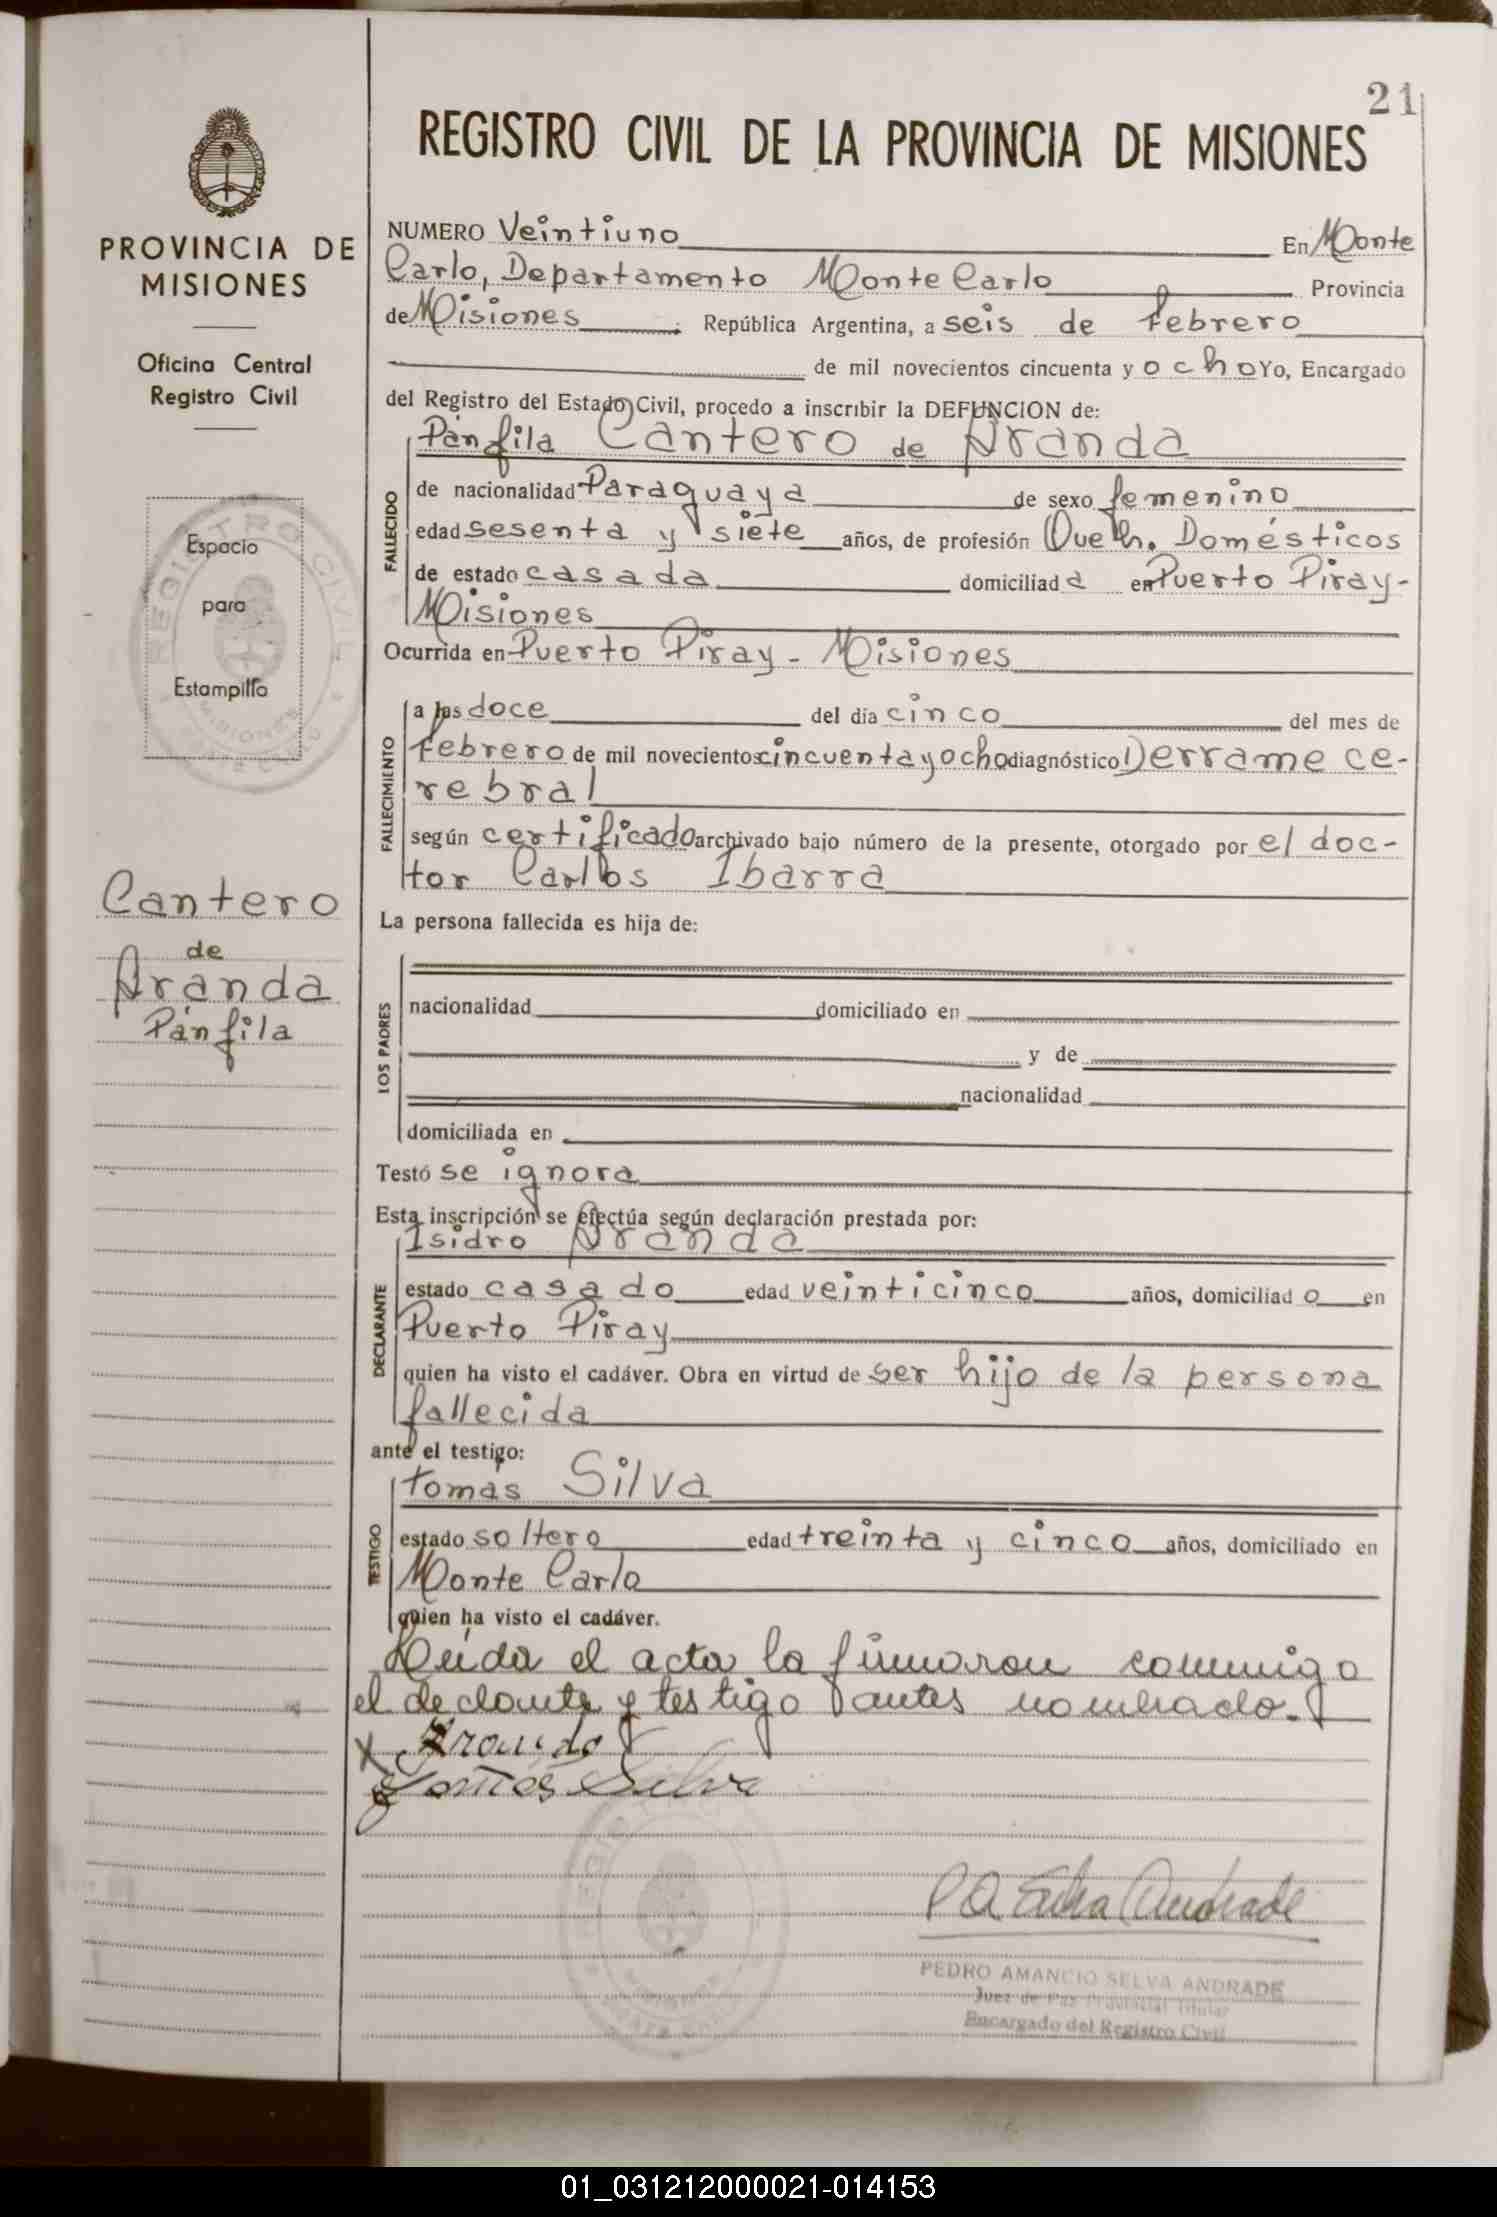 21
REGISTRO CIVIL DE LA PROVINCIA DE MISIONES
PROVINCIA DE
MISIONES
Oficina Central
Registro Civil
Espacio
para
Estampilla
Cantero
de
Aranda
Pánfila
NUMERO Veintiuno En Monte
Carlo, Departamento Monte Carlo Provincia
de Misiones República Argentina, a seis de febrero
de mil novecientos cincuenta y ocho Yo, Encargado
del Registro del Estado Civil, procedo a inscribir la DEFUNCION de:
Pánfila Cantero de Aranda
FALLECIDO
de nacionalidad Paraguaya de sexo femenino
edad sesenta y siete años, de profesión Queh. Domésticos
de estado casada domiciliad a en Puerto Piray-
Misiones
Ocurrida en Puerto Piray - Misiones
FALLECIMIENTO
a las doce del día cinco del mes de
febrero de mil novecientos cincuenta y ocho diagnóstico Derrame ce-
rebral
según certificado archivado bajo número de la presente, otorgado por el doc-
tor Carlos Ibarra
La persona fallecida es hija de:
LOS PADRES
nacionalidad domiciliado en
y de
nacionalidad
domiciliada en
Testó se ignora
Esta inscripción se efectúa según declaración prestada por:
Isidro Aranda
DECLARANTE
estado casado edad veinticinco años, domiciliad o en
Puerto Piray
quien ha visto el cadáver. Obra en virtud de ser hijo de la persona
fallecida
ante el testigo:
tomas Silva
TESTIGO
estado soltero edad treinta y cinco años, domiciliado en
Monte Carlo
quien ha visto el cadáver.
Leida el acta la firmaron conmigo
el declarante y testigo antes nombrado.
X Aranda
Tomás Silva
P A Selva Andrade
PEDRO AMANCIO SELVA ANDRADE
Juez de Paz Provincial Titular
Encargado del Registro Civil
REGISTRO CIVIL
MISIONES
01_031212000021-014153